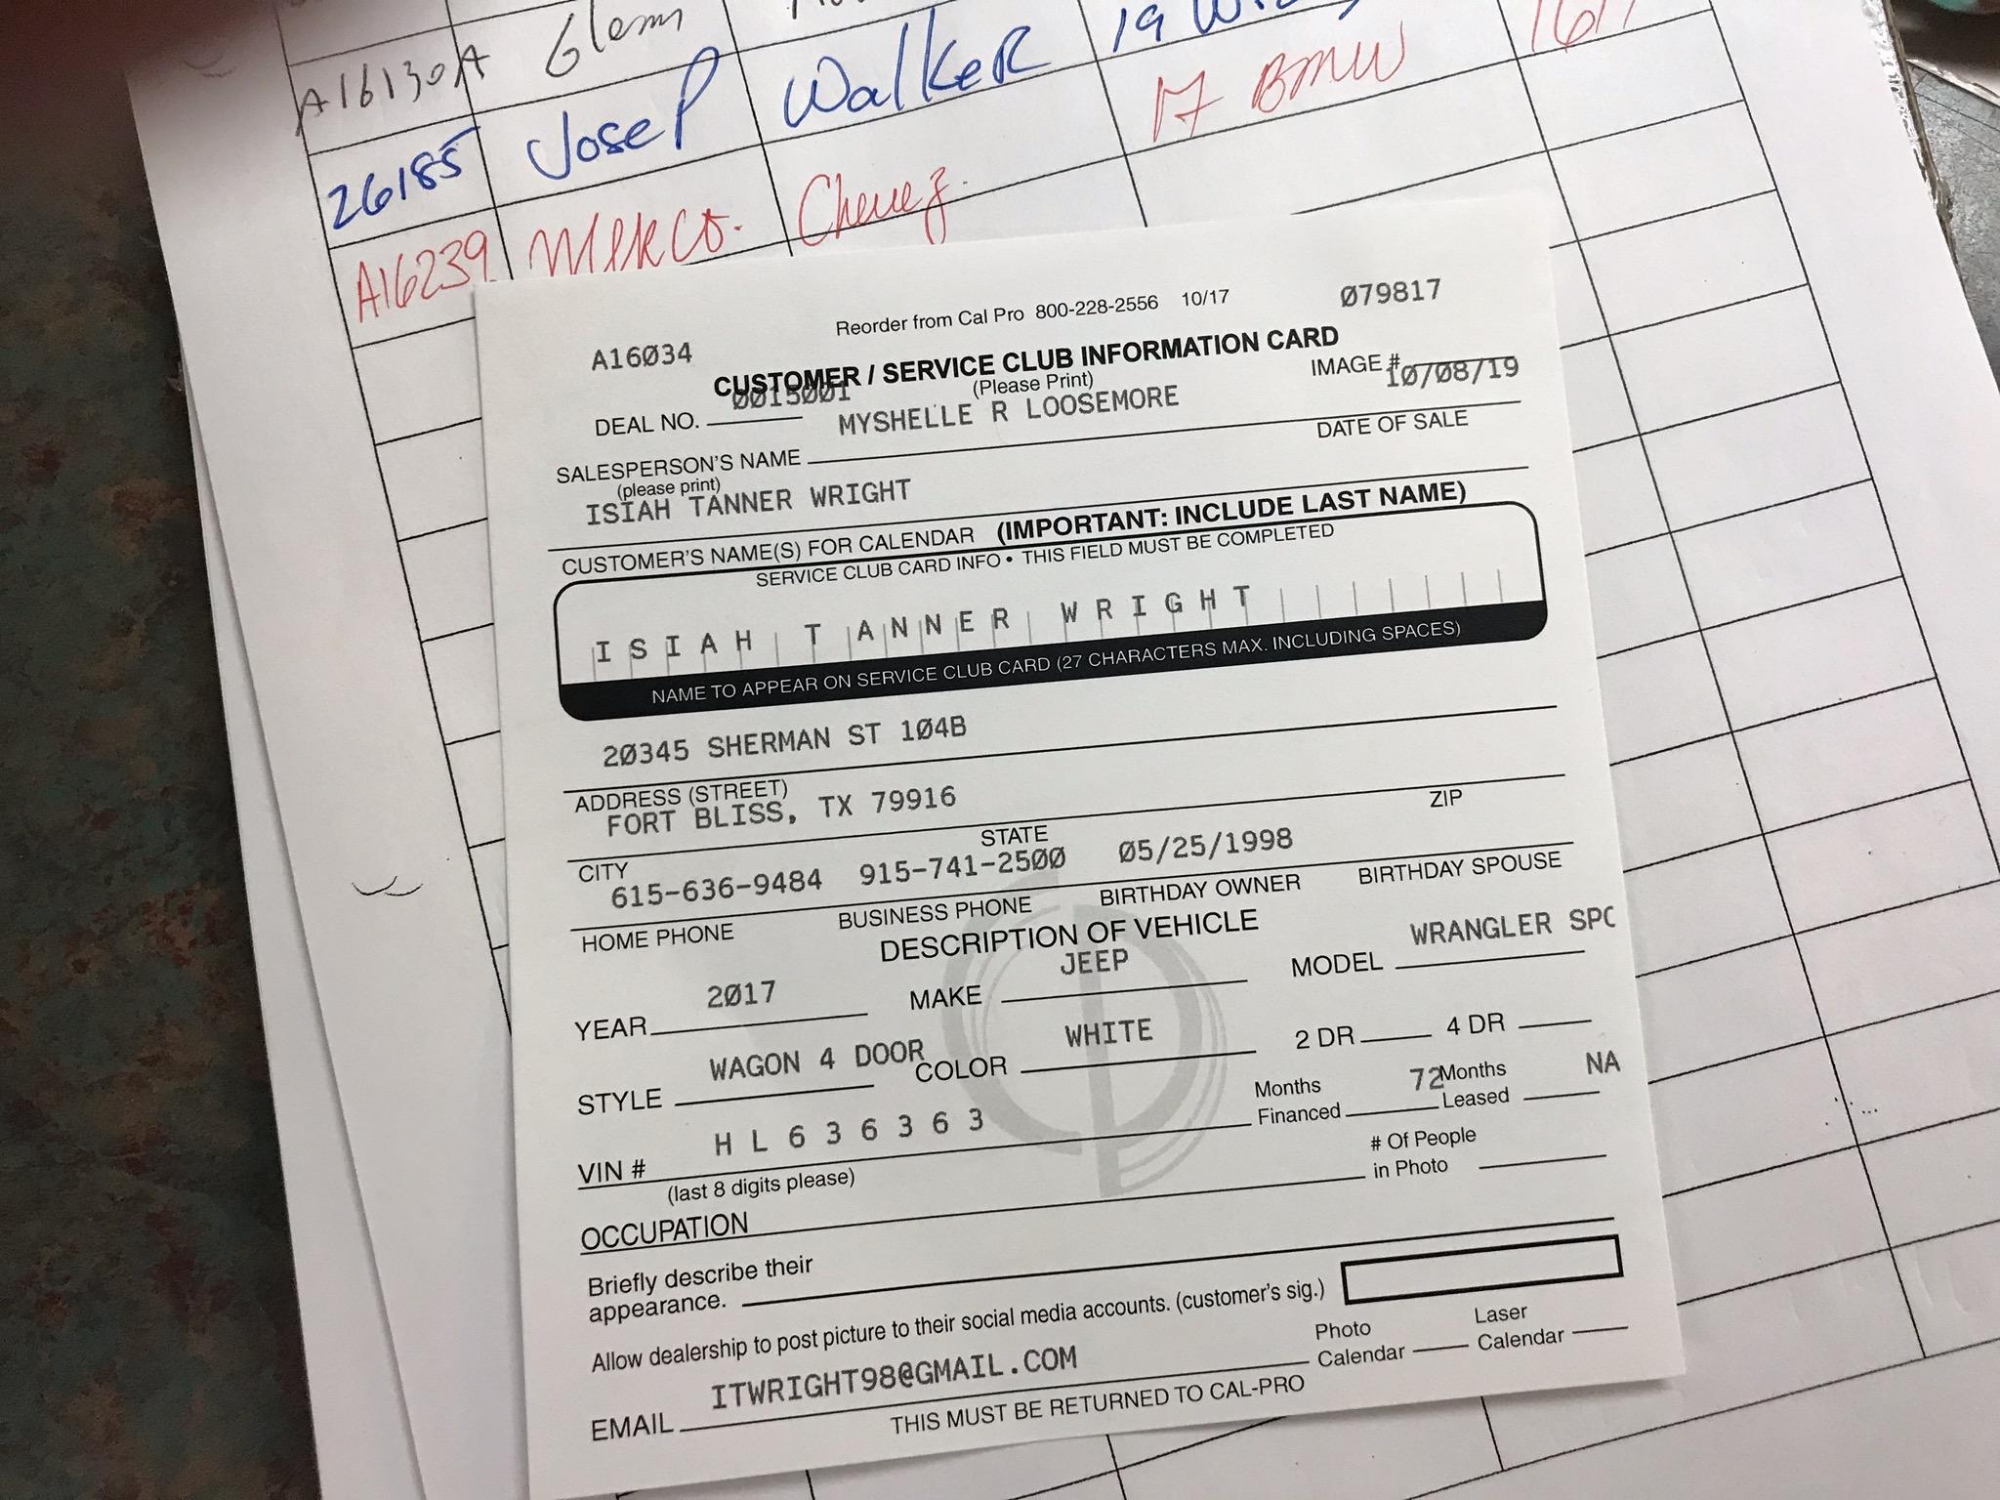 A16130A Glenn
26185 Josep Walker 19
A16239 17 BMW 1617
Reorder from Cal Pro 800-228-2556 10/17 Ø79817
A16Ø34
CUSTOMER / SERVICE CLUB INFORMATION CARD
(Please Print) IMAGE # 1Ø/Ø8/19
DEAL NO. ØØ15ØØ1 MYSHELLE R LOOSEMORE
SALESPERSON'S NAME DATE OF SALE
(please print)
ISIAH TANNER WRIGHT
CUSTOMER'S NAME(S) FOR CALENDAR (IMPORTANT: INCLUDE LAST NAME)
SERVICE CLUB CARD INFO • THIS FIELD MUST BE COMPLETED
ISIAH TANNER WRIGHT
NAME TO APPEAR ON SERVICE CLUB CARD (27 CHARACTERS MAX. INCLUDING SPACES)
2Ø345 SHERMAN ST 1Ø4B
ADDRESS (STREET)
FORT BLISS, TX 79916
CITY STATE ZIP
615-636-9484 915-741-25ØØ Ø5/25/1998
HOME PHONE BUSINESS PHONE BIRTHDAY OWNER BIRTHDAY SPOUSE
DESCRIPTION OF VEHICLE
YEAR 2Ø17 MAKE JEEP MODEL WRANGLER SPO
STYLE WAGON 4 DOOR COLOR WHITE 2 DR 4 DR
Months Financed 72 Months Leased NA
VIN # H L 6 3 6 3 6 3
(last 8 digits please)
# Of People
in Photo
OCCUPATION
Briefly describe their
appearance.
Allow dealership to post picture to their social media accounts. (customer's sig.)
Photo Calendar Laser Calendar
EMAIL ITWRIGHT98@GMAIL.COM
THIS MUST BE RETURNED TO CAL-PRO